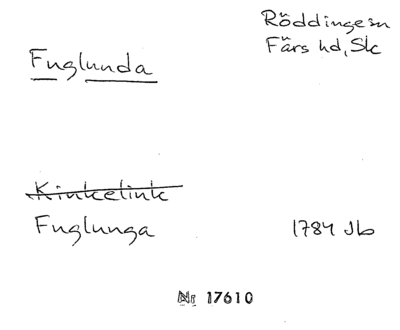 Röddinge sn
Färs hd, Sk
Fuglunda
Kinkelink
Fuglunga 1784 Jb
Nr 17610